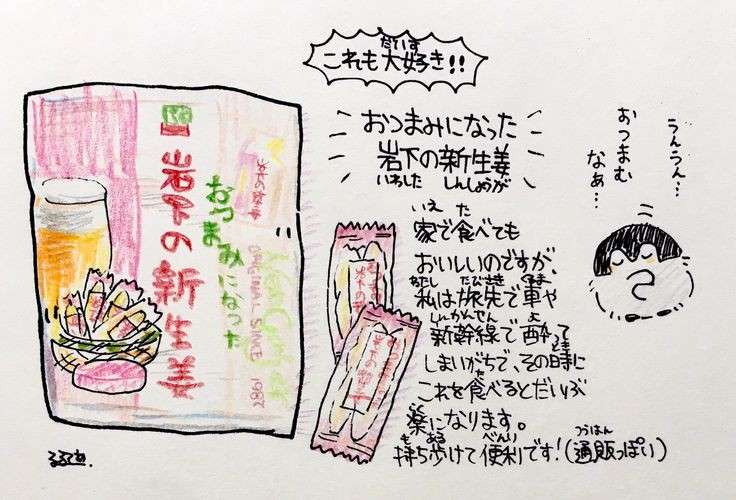 これも大好き!!
だいす
おつまみになった
岩下の新生姜
いわした しんしょうが
いえ た
家で食べても
おいしいのですが、
わたし たびさき くるま
私は旅先で車や
しんかんせん よ
新幹線で酔って
しまいがちで、その時に
とき
これを食べるとだいぶ
た
楽になります。
らく
も ある べんり
持ち歩けて便利です!(通販っぽい)
つうはん
うんうん…
おつまむ
なぁ…
岩下の新生姜
おつまみになった
岩下の新生姜
ORIGINAL SINCE 1987
岩下の新生姜
おつまみになった
岩下の新生姜
るるてあ.